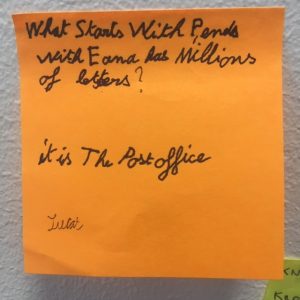 What Starts With P, ends
with E and has Millions
of letters?
it is The Post office
KN